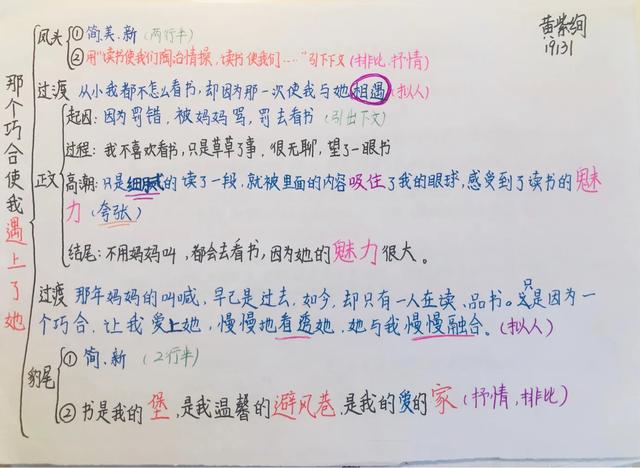 黄紫绚
19131
那个巧合使我遇上了她
凤头 ① 简、美、新 (两行半)
② 用“读书使我们陶冶情操,读书使我们……”引下文 (排比、抒情)
过渡 从小我都不怎么看书,却因为那一次使我与她相遇(拟人)
正文 起因:因为罚错,被妈妈骂,罚去看书 (引出下文)
过程:我不喜欢看书,只是草草了事,很无聊,望了一眼书
高潮:只是细腻的读了一段,就被里面的内容吸住了我的眼球,感受到了读书的魅
力(夸张)
结尾:不用妈妈叫,都会去看书,因为她的魅力很大。
过渡 那年妈妈的叫喊,早已是过去,如今,却只有一人在读、品书。只是因为一
个巧合,让我爱上她,慢慢地看透她,她与我慢慢融合。(拟人)
豹尾 ① 简、新 (2行半)
② 书是我的堡,是我温馨的避风巷,是我的爱的家(抒情,排比)